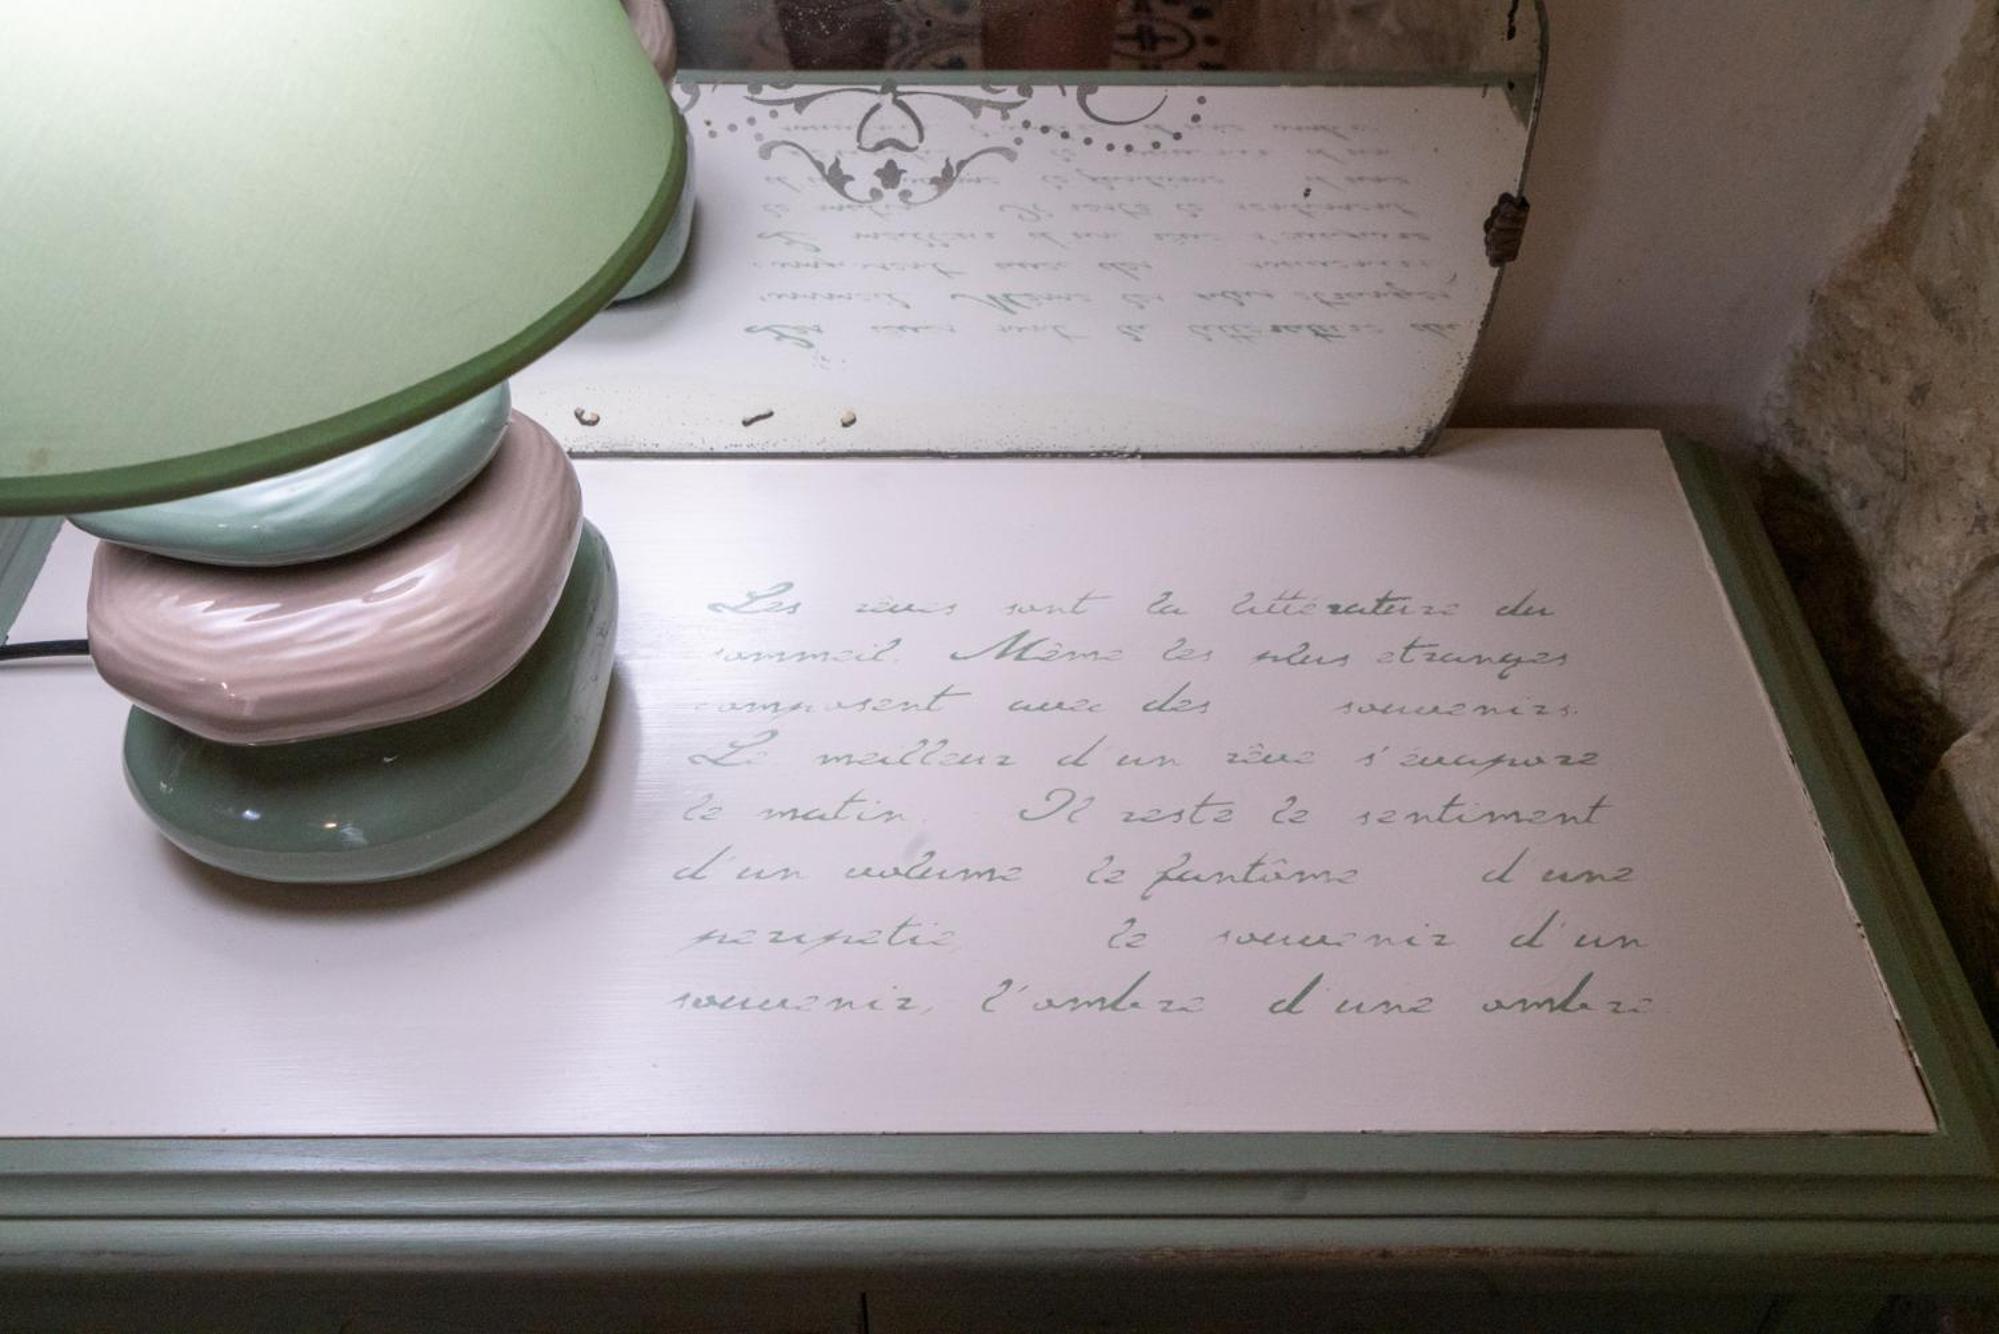 Les rêves sont la littérature du
sommeil. Même les plus etranges
composent avec des souvenirs.
Le meilleur d'un rêve s'évapore
le matin. Il reste le sentiment
d'un volume le fantôme d'une
peripetie le souvenir d'un
souvenir, l'ombre d'une ombre